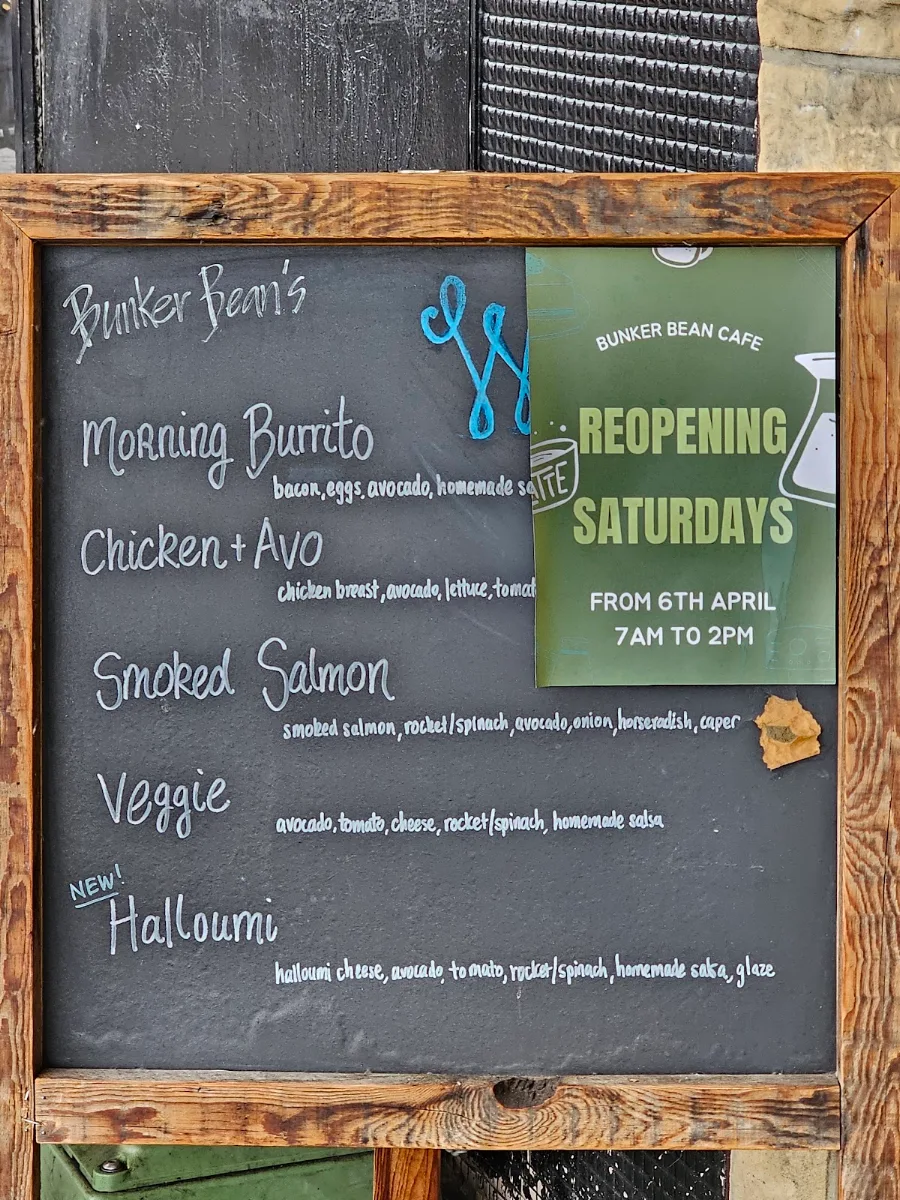 Bunker Bean's
W
Morning Burrito
bacon, eggs, avocado, homemade
Chicken + Avo
chicken breast, avocado, lettuce,
Smoked Salmon
smoked salmon, rocket/spinach, avocado, onion, horseradish, caper
Veggie
avocado, tomato, cheese, rocket/spinach, homemade salsa
NEW!
Halloumi
halloumi cheese, avocado, tomato, rocket/spinach, homemade salsa, glaze
BUNKER BEAN CAFE
REOPENING
SATURDAYS
FROM 6TH APRIL
7AM TO 2PM